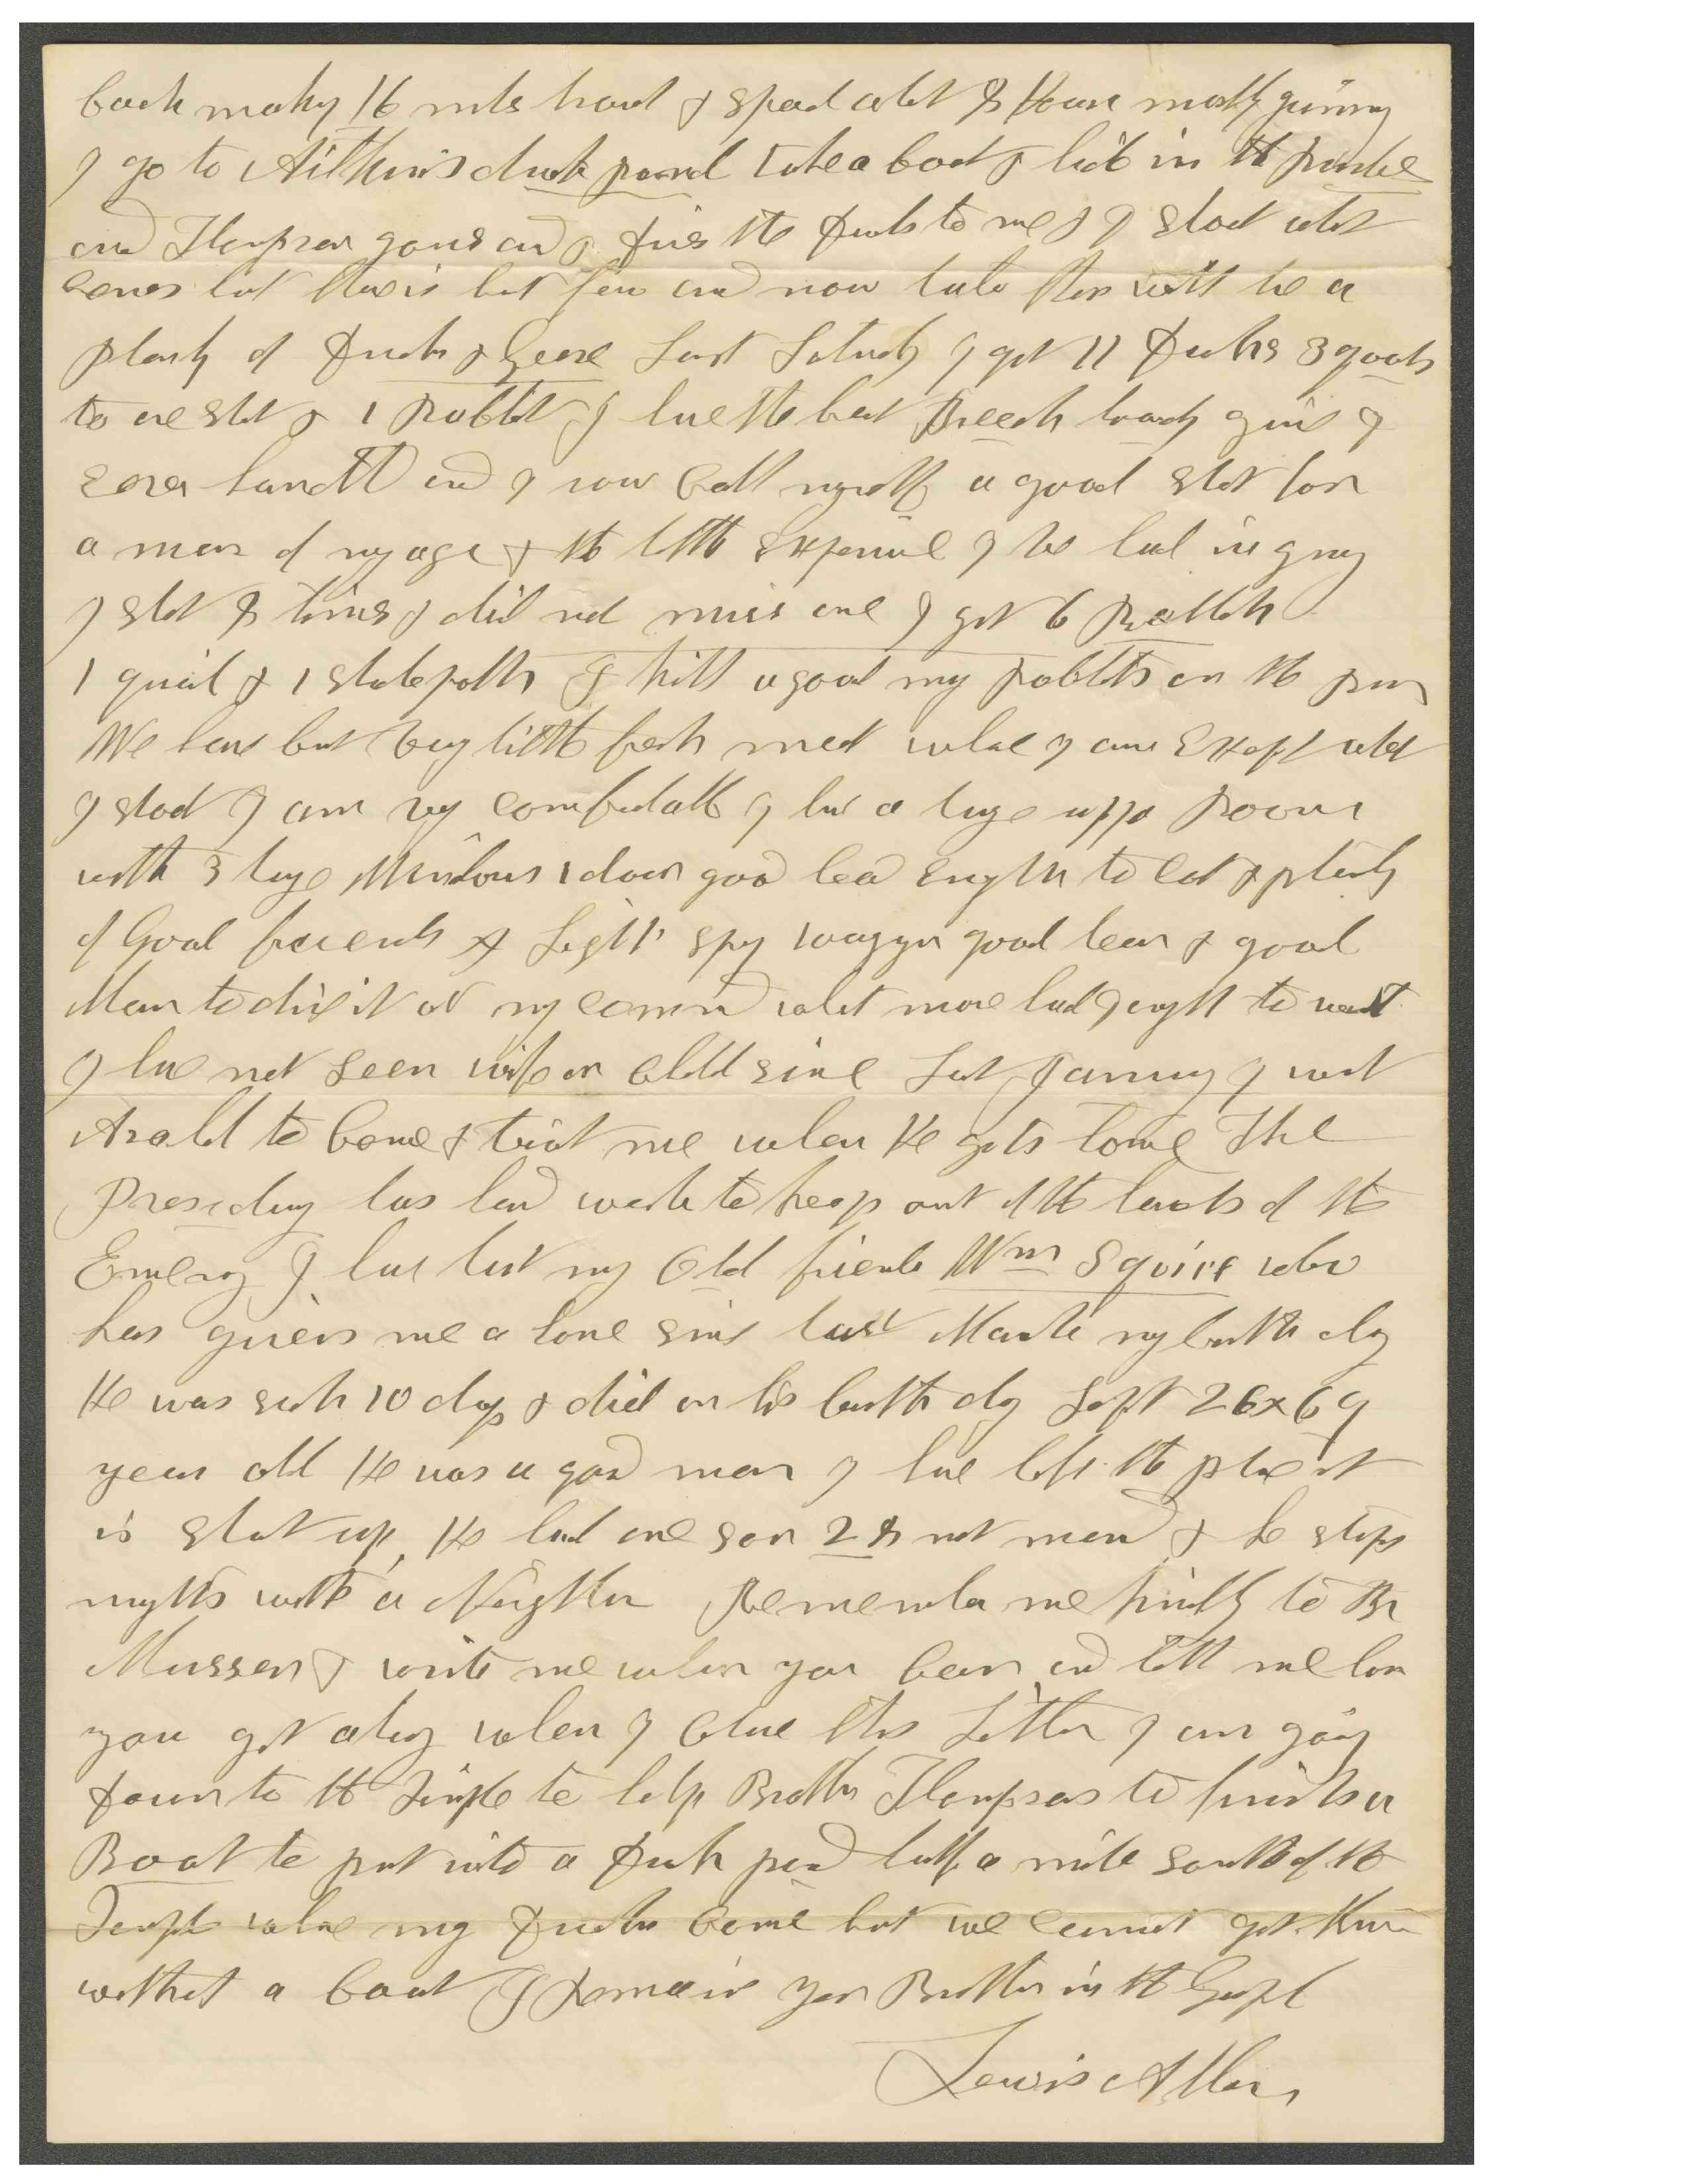 back making 16 mils travel & spend about 8 Hours mostly guning
I go to Atkins duck pond take a boat & hide in the rushes
and Thompson goes and drives the Ducks to me & I shoot what
comes but there is but few and now but there will be a
plenty of Ducks & Geese Last Saturdy I got 11 Ducks 3 quails
to one shot & 1 Rabbit I have the best Breech loadg gun I
ever handld and I now call myself a good shot for
a man of my age & the little Experience I have had in guning
I shot 8 times & did not miss one I got 6 Rabbits
1 quail & 1 I kill a good many rabbits on the run
We have but very little fresh meat whare I am Except what
I shoot I am very comfortable I have a large upper Room
with 3 large Windows 1 door good bed Enough to eat & plenty
of Good friends A Light spring waggon good team & good
Man to drive it at my command what more had I ought to want
I have not seen wife or child since Last January I want
to Come & visit me when He gets home The
Presidency has hard work to keep out of the hands of the
Enemy I have lost my Old friend Wm Squire who
has given me a home since last March my birth day
He was sick 10 days & died on his birth day Sept 26 69
years old He was a good man I have left the place it
is shut up, He had one son 28 not married & he stops
nights with a Neighbor Remember me kindly to Br
Musser & write me when you can and tell me how
you get along when I close this Letter I am going
down to the Temple to help Brother Thompson to finish a
Boat to put into a Duck pond half a mile south of the
Temple whare many Ducks come but we cannot get them
without a boat I Remain your Brother in the Gospel
Lewis Allan